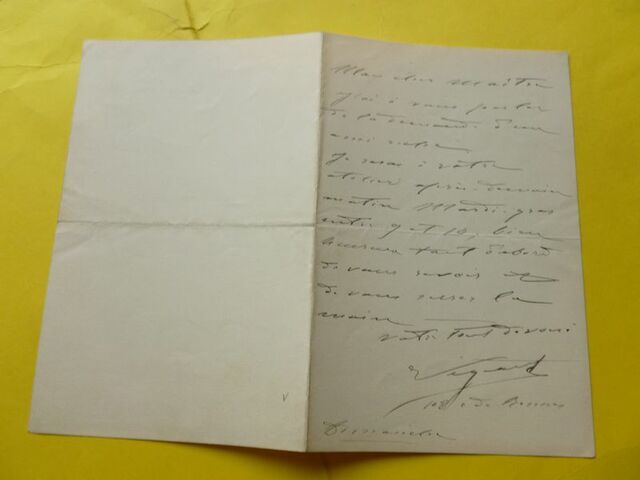 Mon cher Maître
J'ai à vous parler
de la demande d'un
ami
Je serai à votre
atelier après-demain
matin Mardi-gras
entre 9 et 10, bien
heureux tout d'abord
de vous revoir et
de vous serrer la
main
Votre tout dévoué
108 r de Rennes
Dimanche
V